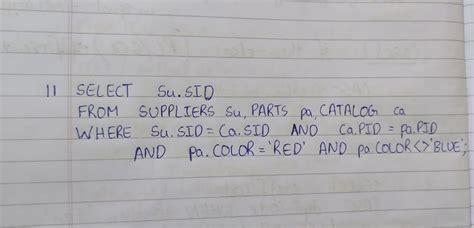 11 SELECT Su.SID
FROM SUPPLIERS Su, PARTS pa, CATALOG ca
WHERE Su.SID = Ca.SID AND Ca.PID = pa.PID
AND pa.COLOR = 'RED' AND pa.COLOR <> 'BLUE';